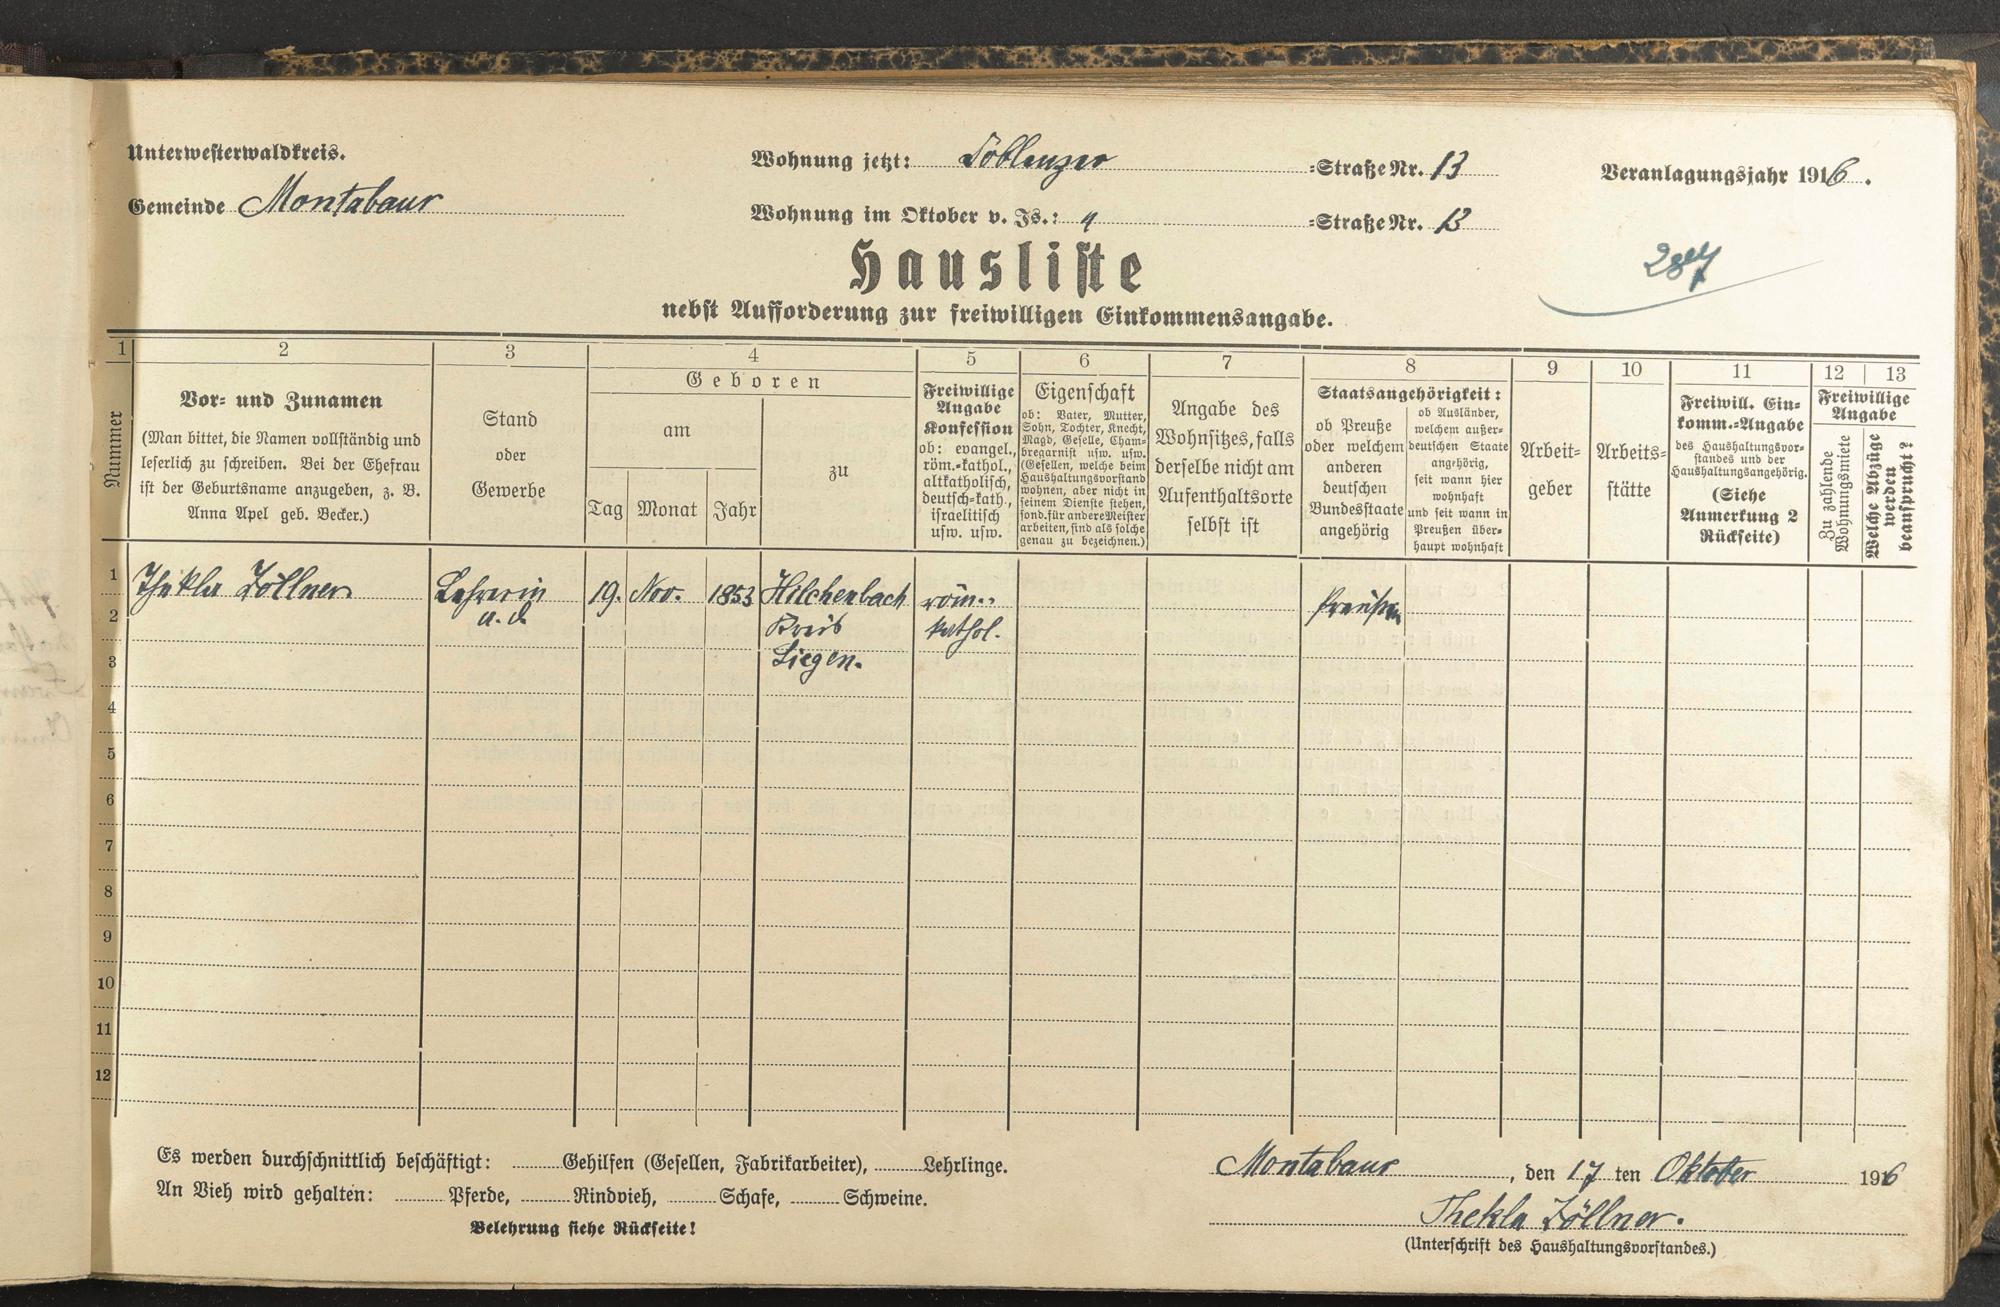 Unterwesterwaldkreis.
Gemeinde Montabaur
Wohnung jetzt: Coblenzer =Straße Nr. 13
Wohnung im Oktober v. Js.: " =Straße Nr. 13
Veranlagungsjahr 1916.
Hausliste
nebst Aufforderung zur freiwilligen Einkommensangabe.
1 2 3 4 5 6 7 8 9 10 11 12 13
Nummer
Vor- und Zunamen
(Man bittet, die Namen vollständig und
leserlich zu schreiben. Bei der Ehefrau
ist der Geburtsname anzugeben, z. B.
Anna Apel geb. Becker.)
Stand
oder
Gewerbe
Geboren
am
Tag Monat Jahr
zu
Freiwillige
Angabe
Konfession
ob: evangel.,
röm.-kathol.,
altkatholisch,
deutsch-kath.,
israelitisch
usw. usw.
Eigenschaft
ob: Vater, Mutter,
Sohn, Tochter, Knecht,
Magd, Geselle, Cham-
bregarnist usw. usw.
(Gesellen, welche beim
Haushaltungsvorstand
wohnen, aber nicht in
seinem Dienste stehen,
sond. für andere Meister
arbeiten, sind als solche
genau zu bezeichnen.)
Angabe des
Wohnsitzes, falls
derselbe nicht am
Aufenthaltsorte
selbst ist
Staatsangehörigkeit:
ob Preuße
oder welchem
anderen
deutschen
Bundesstaate
angehörig
ob Ausländer,
welchem außer-
deutschen Staate
angehörig,
seit wann hier
wohnhaft
und seit wann in
Preußen über-
haupt wohnhaft
Arbeit-
geber
Arbeits-
stätte
Freiwill. Ein-
komm.-Angabe
des Haushaltungsvor-
standes und der
Haushaltungsangehörig.
(Siehe
Anmerkung 2
Rückseite)
Freiwillige
Angabe
Zu zahlende
Wohnungsmiete
Welche Abzüge
werden
beansprucht?
1 Thekla Zöllner Lehrerin 19. Nov. 1853 Hilchenbach röm.- Preußin
2 a. d. Kreis kathol.
3 Siegen.
4
5
6
7
8
9
10
11
12
Es werden durchschnittlich beschäftigt: Gehilfen (Gesellen, Fabrikarbeiter), Lehrlinge.
An Vieh wird gehalten: Pferde, Rindvieh, Schafe, Schweine.
Belehrung siehe Rückseite!
Montabaur, den 17 ten Oktober 1916
Thekla Zöllner.
(Unterschrift des Haushaltungsvorstandes.)